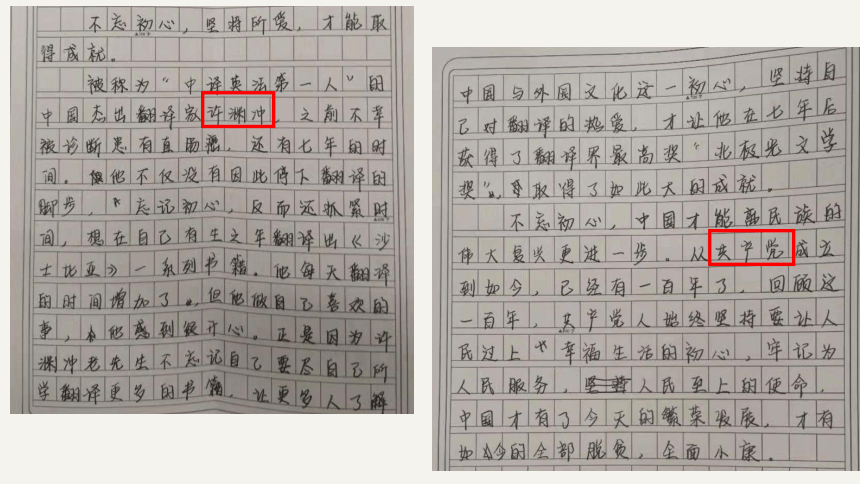 不忘初心，坚持所爱，才能取
得成就。
被称为“中译英法第一人”的
中国杰出翻译家许渊冲，之前不幸
被诊断患有直肠癌，还有七年的时
间。但他不仅没有因此停下翻译的
脚步，忘记初心，反而还抓紧时
间，想在自己有生之年翻译出《沙
士比亚》一系列书籍。他每天翻译
的时间增加了，但他做自己喜欢的
事，他感到很开心。正是因为许
渊冲老先生不忘记自己要尽自己所
学翻译更多的书籍，让更多人了解
中国与外国文化这一初心，坚持自
己对翻译的热爱，才让他在七年后
获得了翻译界最高奖“北极光文学
奖”，取得了如此大的成就。
不忘初心，中国才能离民族的
伟大复兴更进一步。从共产党成立
到如今，已经有一百年了，回顾这
一百年，共产党人始终坚持要让人
民过上幸福生活的初心，牢记为
人民服务，人民至上的使命，
中国才有了今天的繁荣发展，才有
如今的全部脱贫，全面小康。